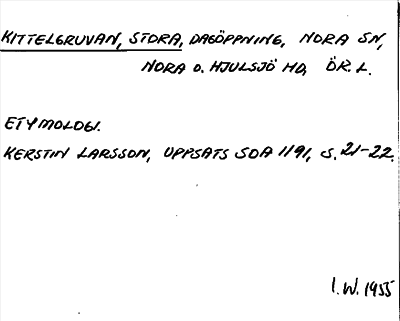 KITTELGRUVAN, STORA, DAGÖPPNING, NORA SN,
NORA O. HJULSJÖ HD, ÖR. L.
ETYMOLOGI.
KERSTIN LARSSON, UPPSATS SOA 1191, S. 21-22.
I.W. 1955